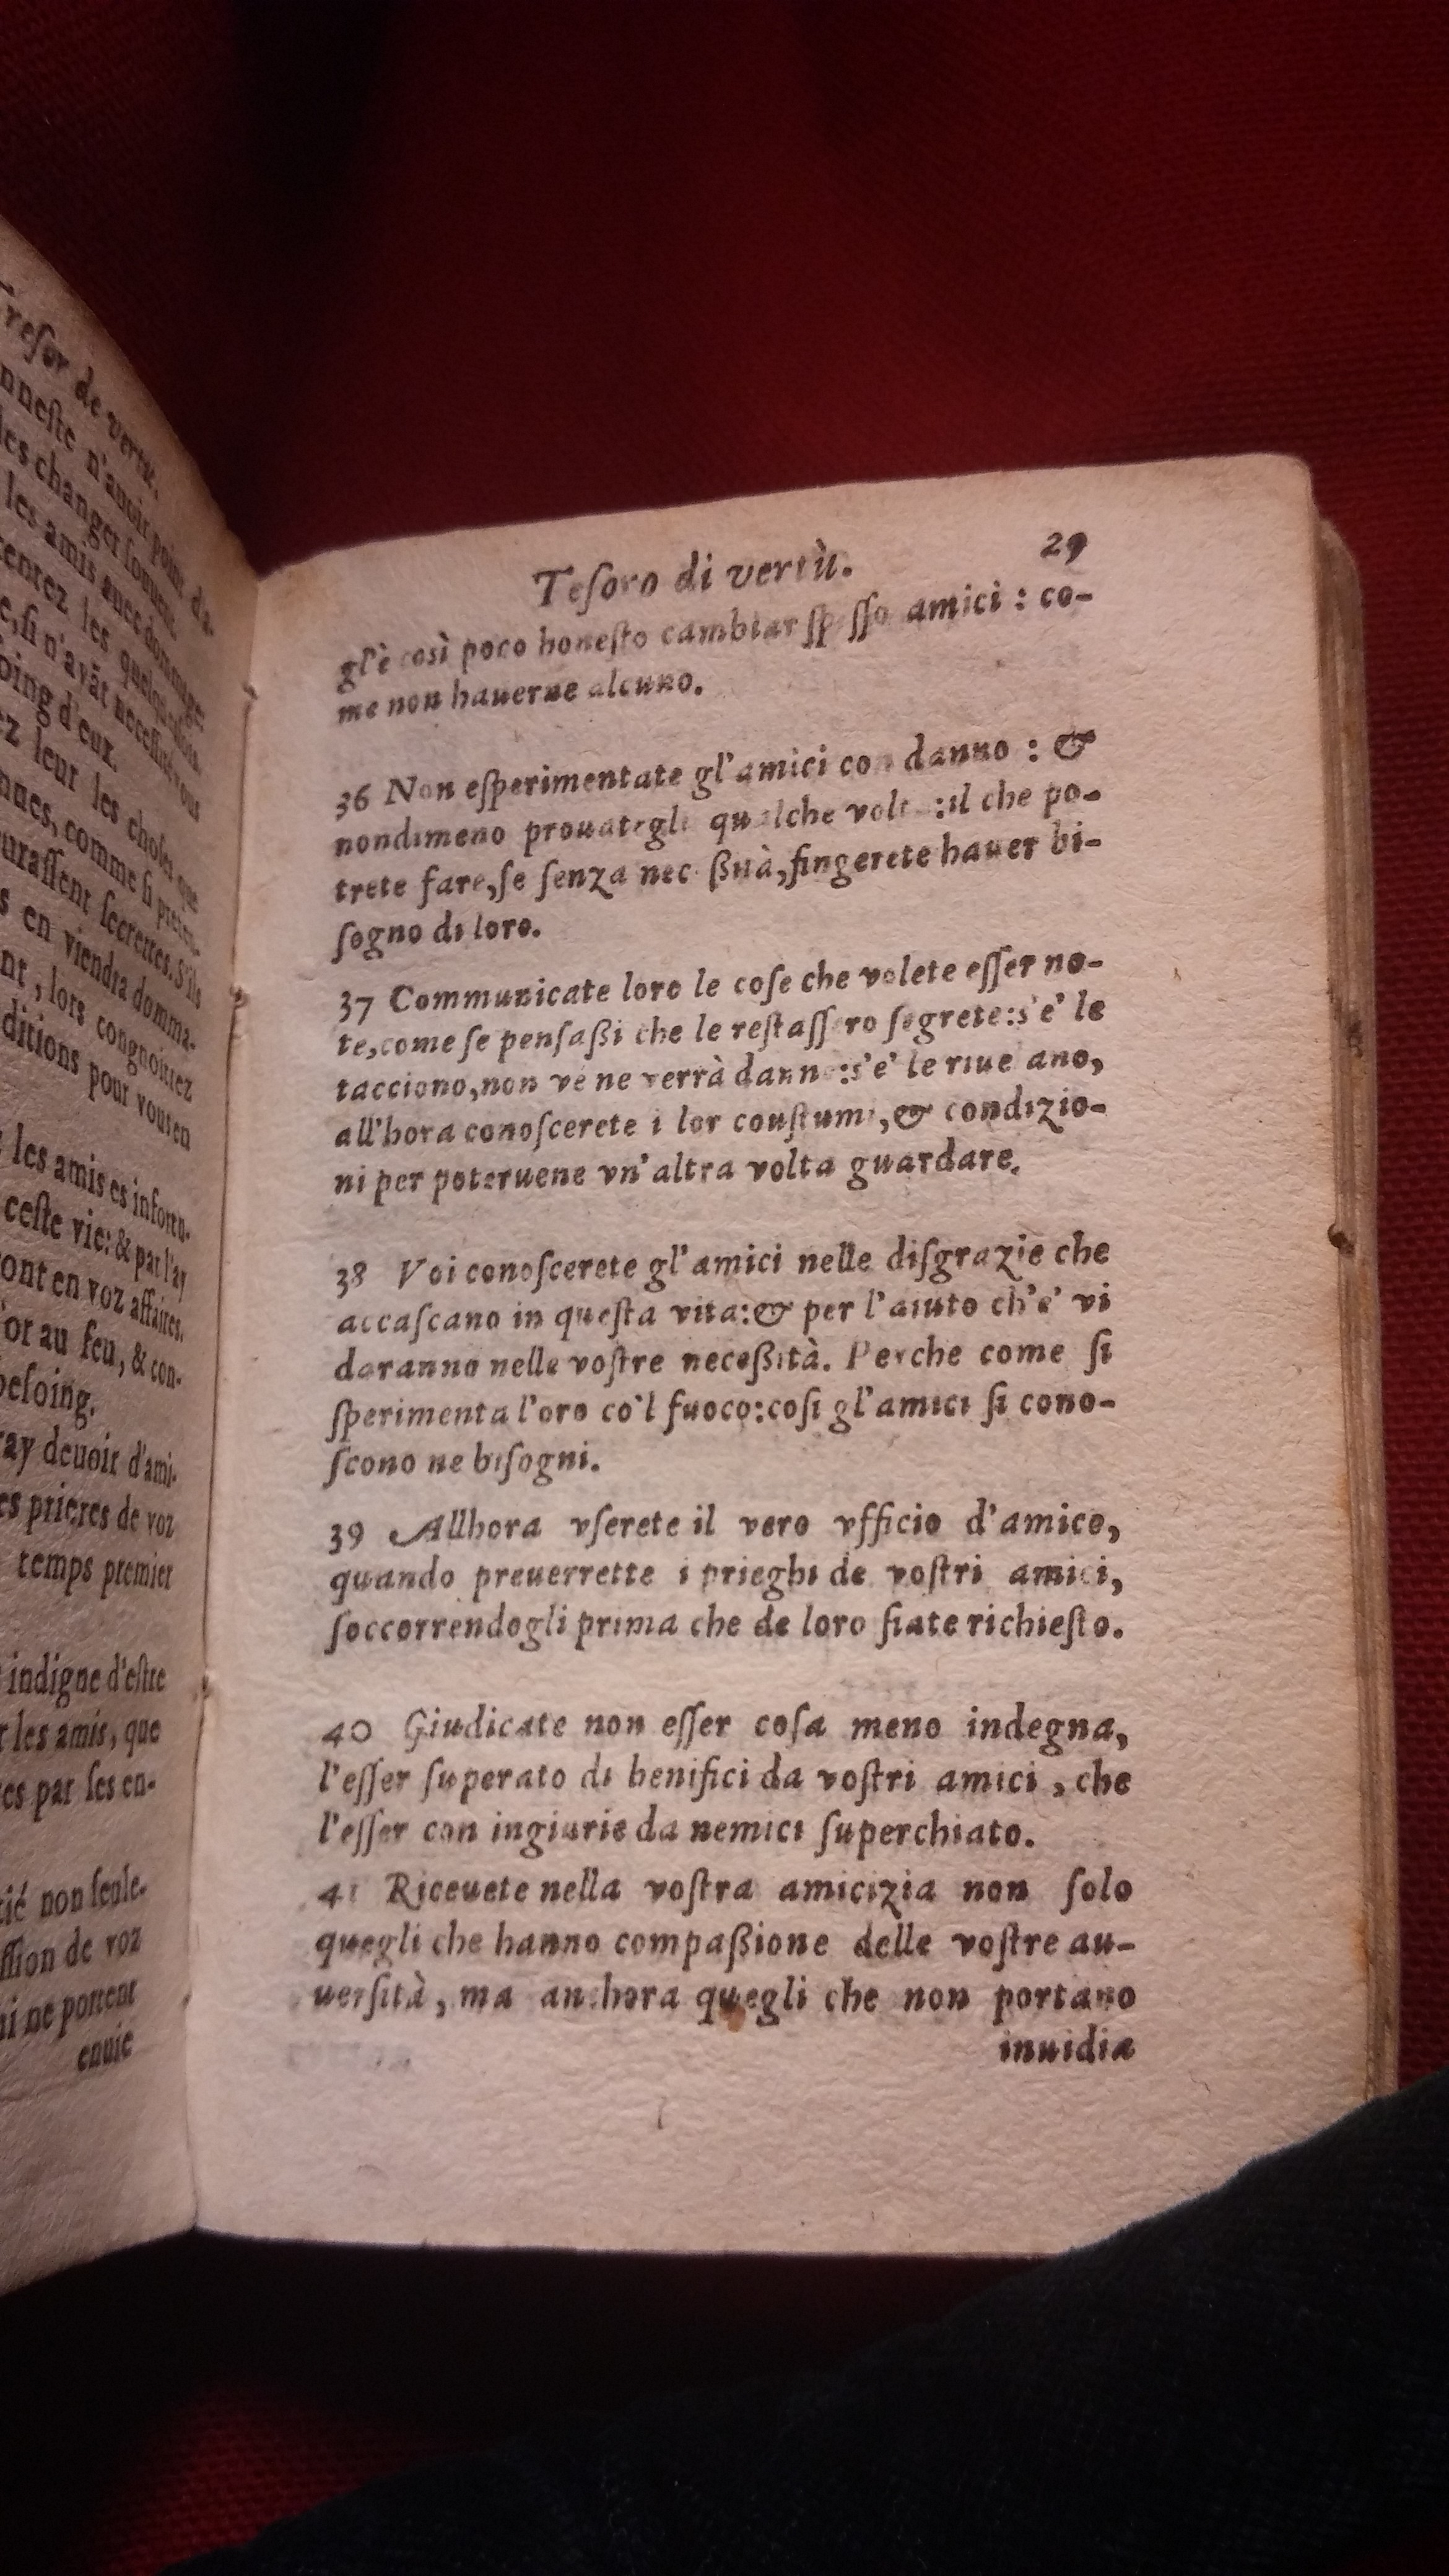 Treſor de vertu.
nneſte n'auoir point d'a-
les changer ſouuent.
les amis auec dommage:
centez les quelquesfois
e, ſi n'ayāt neceſſité vous
oing d'eux.
ez leur les choſes que
nues, comme ſi
uraſſent ſecrettes. S'ils
s en viendra domma-
nt, lors congnoitrez
ditions pour vous en
les amis es infortu-
ceſte vie: & par l'ay
ont en voz affaires.
'or au feu, & con-
beſoing.
ray deuoir d'ami-
es prieres de voz
temps premier
indigne d'eſtre
r les amis, que
es par ſes en-
tié non ſeule-
ſſion de voz
ui ne portent
enuie
Teſoro di vertù. 29
gl'è così poco honeſto cambiar ſpeſſo amici : co-
me non hauerne alcuno.
36 Non eſperimentate gl'amici con danno : &
nondimeno prouategli qualche volta :il che po-
trete fare,ſe ſenza neceßità,fingerete hauer bi-
ſogno di loro.
37 Communicate loro le coſe che volete eſſer no-
te,come ſe penſaßi che le reſtaſſero ſegrete:s'e' le
tacciono,non ve ne verrà danno:s'e' le riueano,
all'hora conoſcerete i lor couſtumi,& condizio-
ni per poteruene vn'altra volta guardare.
38 Voi conoſcerete gl'amici nelle diſgrazie che
accaſcano in queſta vita:& per l'aiuto ch'e' vi
daranno nelle voſtre neceßità. Perche come ſi
ſperimenta l'oro co'l fuoco:coſi gl'amici ſi cono-
ſcono ne biſogni.
39 Allhora vſerete il vero vfficio d'amico,
quando preuerrette i prieghi de voſtri amici,
ſoccorrendogli prima che de loro ſiate richieſto.
40 Giudicate non eſſer coſa meno indegna,
l'eſſer ſuperato di benifici da voſtri amici , che
l'eſſer con ingiurie da nemici ſuperchiato.
41 Riceuete nella voſtra amicizia non ſolo
quegli che hanno compaßione delle voſtre au-
uerſità, ma anchora quegli che non portano
inuidia